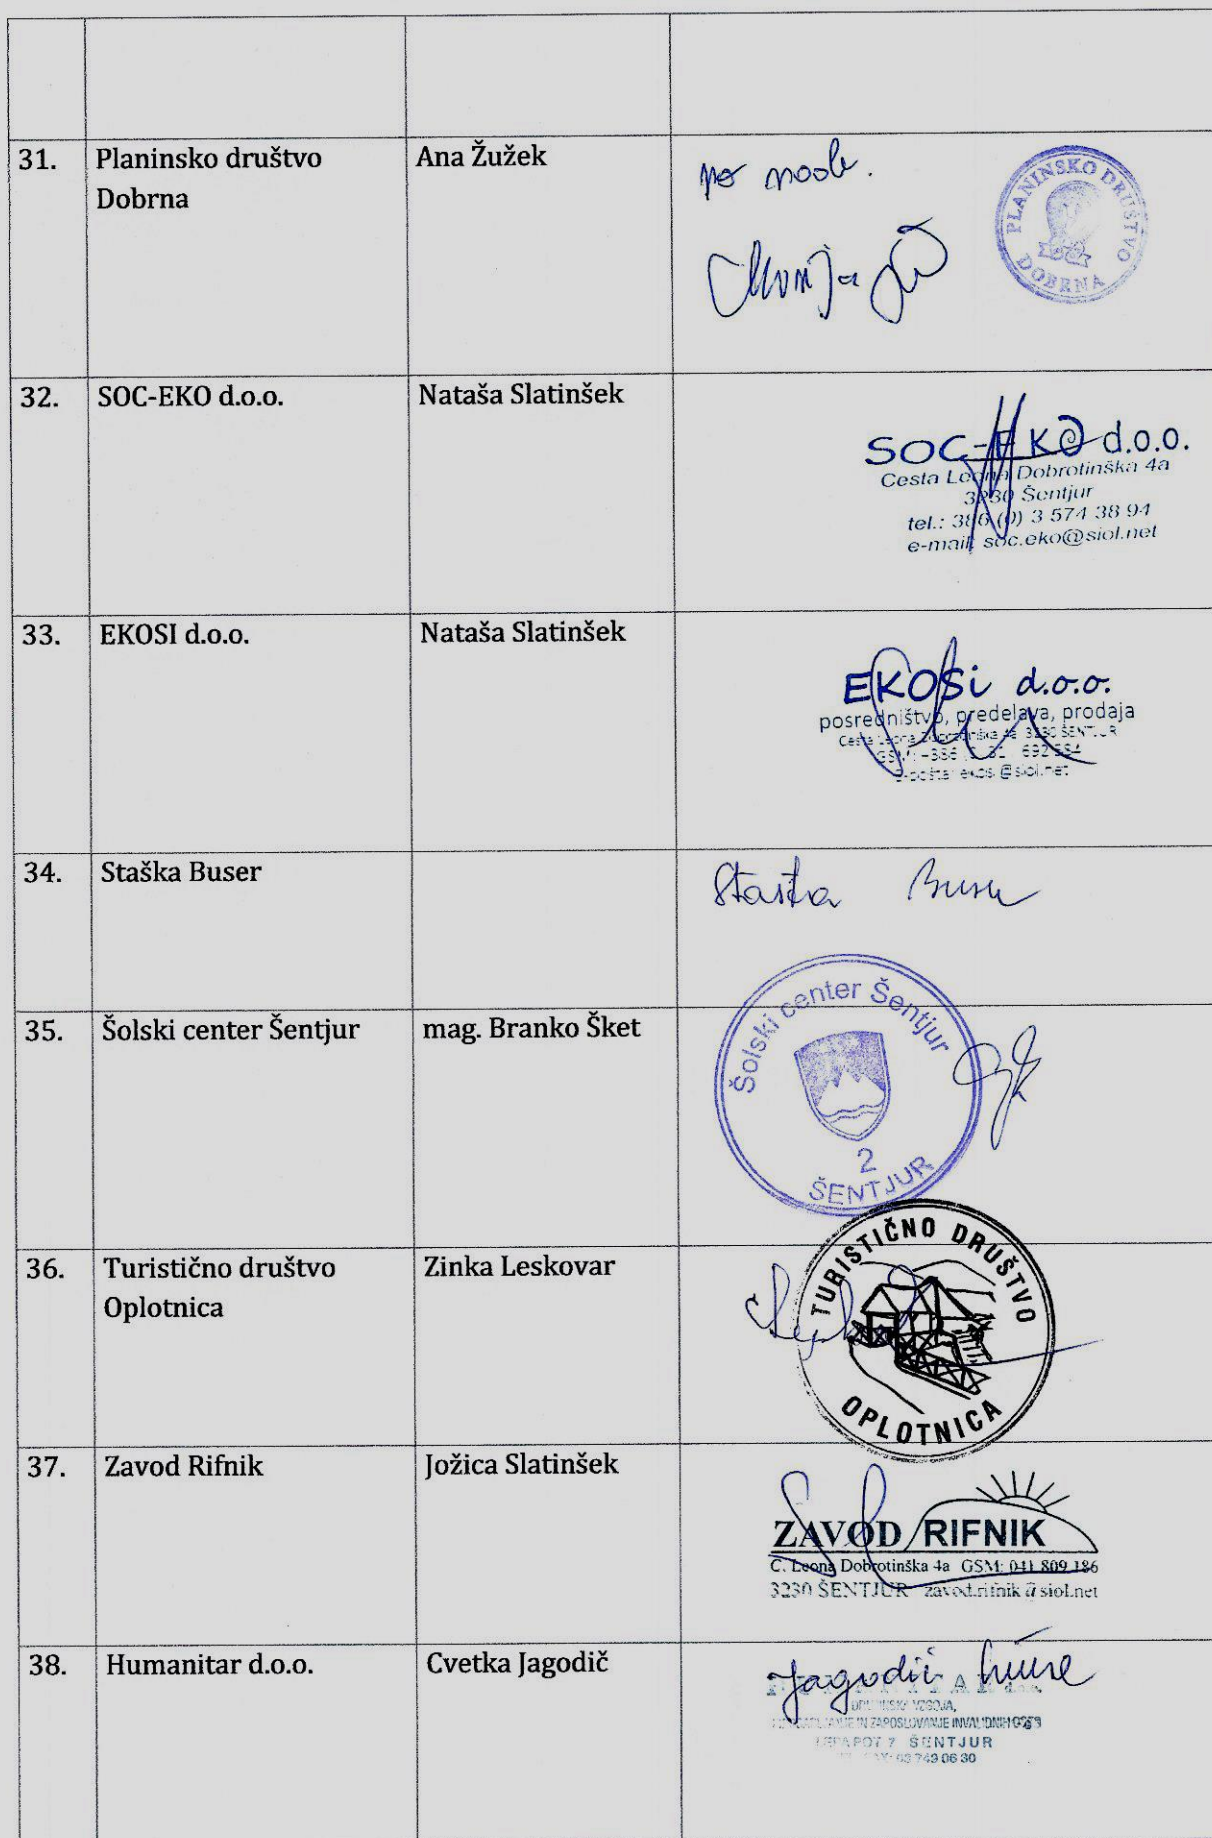 31.
Planinsko društvo
Dobrna
Ana Žužek
po
PLANINSKO DRUŠTVO
DOBRNA
32.
SOC-EKO d.o.o.
Nataša Slatinšek
SOC-EKO d.o.o.
Cesta Leona Dobrotinška 4a
3230 Šentjur
tel.: 386 (0) 3 574 38 94
e-mail: soc.eko@siol.net
33.
EKOSI d.o.o.
Nataša Slatinšek
EKOSi d.o.o.
posredništvo, predelava, prodaja
Cesta Leona Dobrotinška 4a 3230 ŠENTJUR
e-pošta: ekosi@siol.net
34.
Staška Buser
Staška Buser
35.
Šolski center Šentjur
mag. Branko Šket
Šolski center Šentjur
2
ŠENTJUR
36.
Turistično društvo
Oplotnica
Zinka Leskovar
TURISTIČNO DRUŠTVO
OPLOTNICA
37.
Zavod Rifnik
Jožica Slatinšek
ZAVOD RIFNIK
C. Leona Dobrotinška 4a GSM: 041 809 186
3230 ŠENTJUR zavod.rifnik@siol.net
38.
Humanitar d.o.o.
Cvetka Jagodič
Jagodič
IN ZAPOSLOVANJE INVALIDNIH OSEB
ŠENTJUR
03 749 06 30